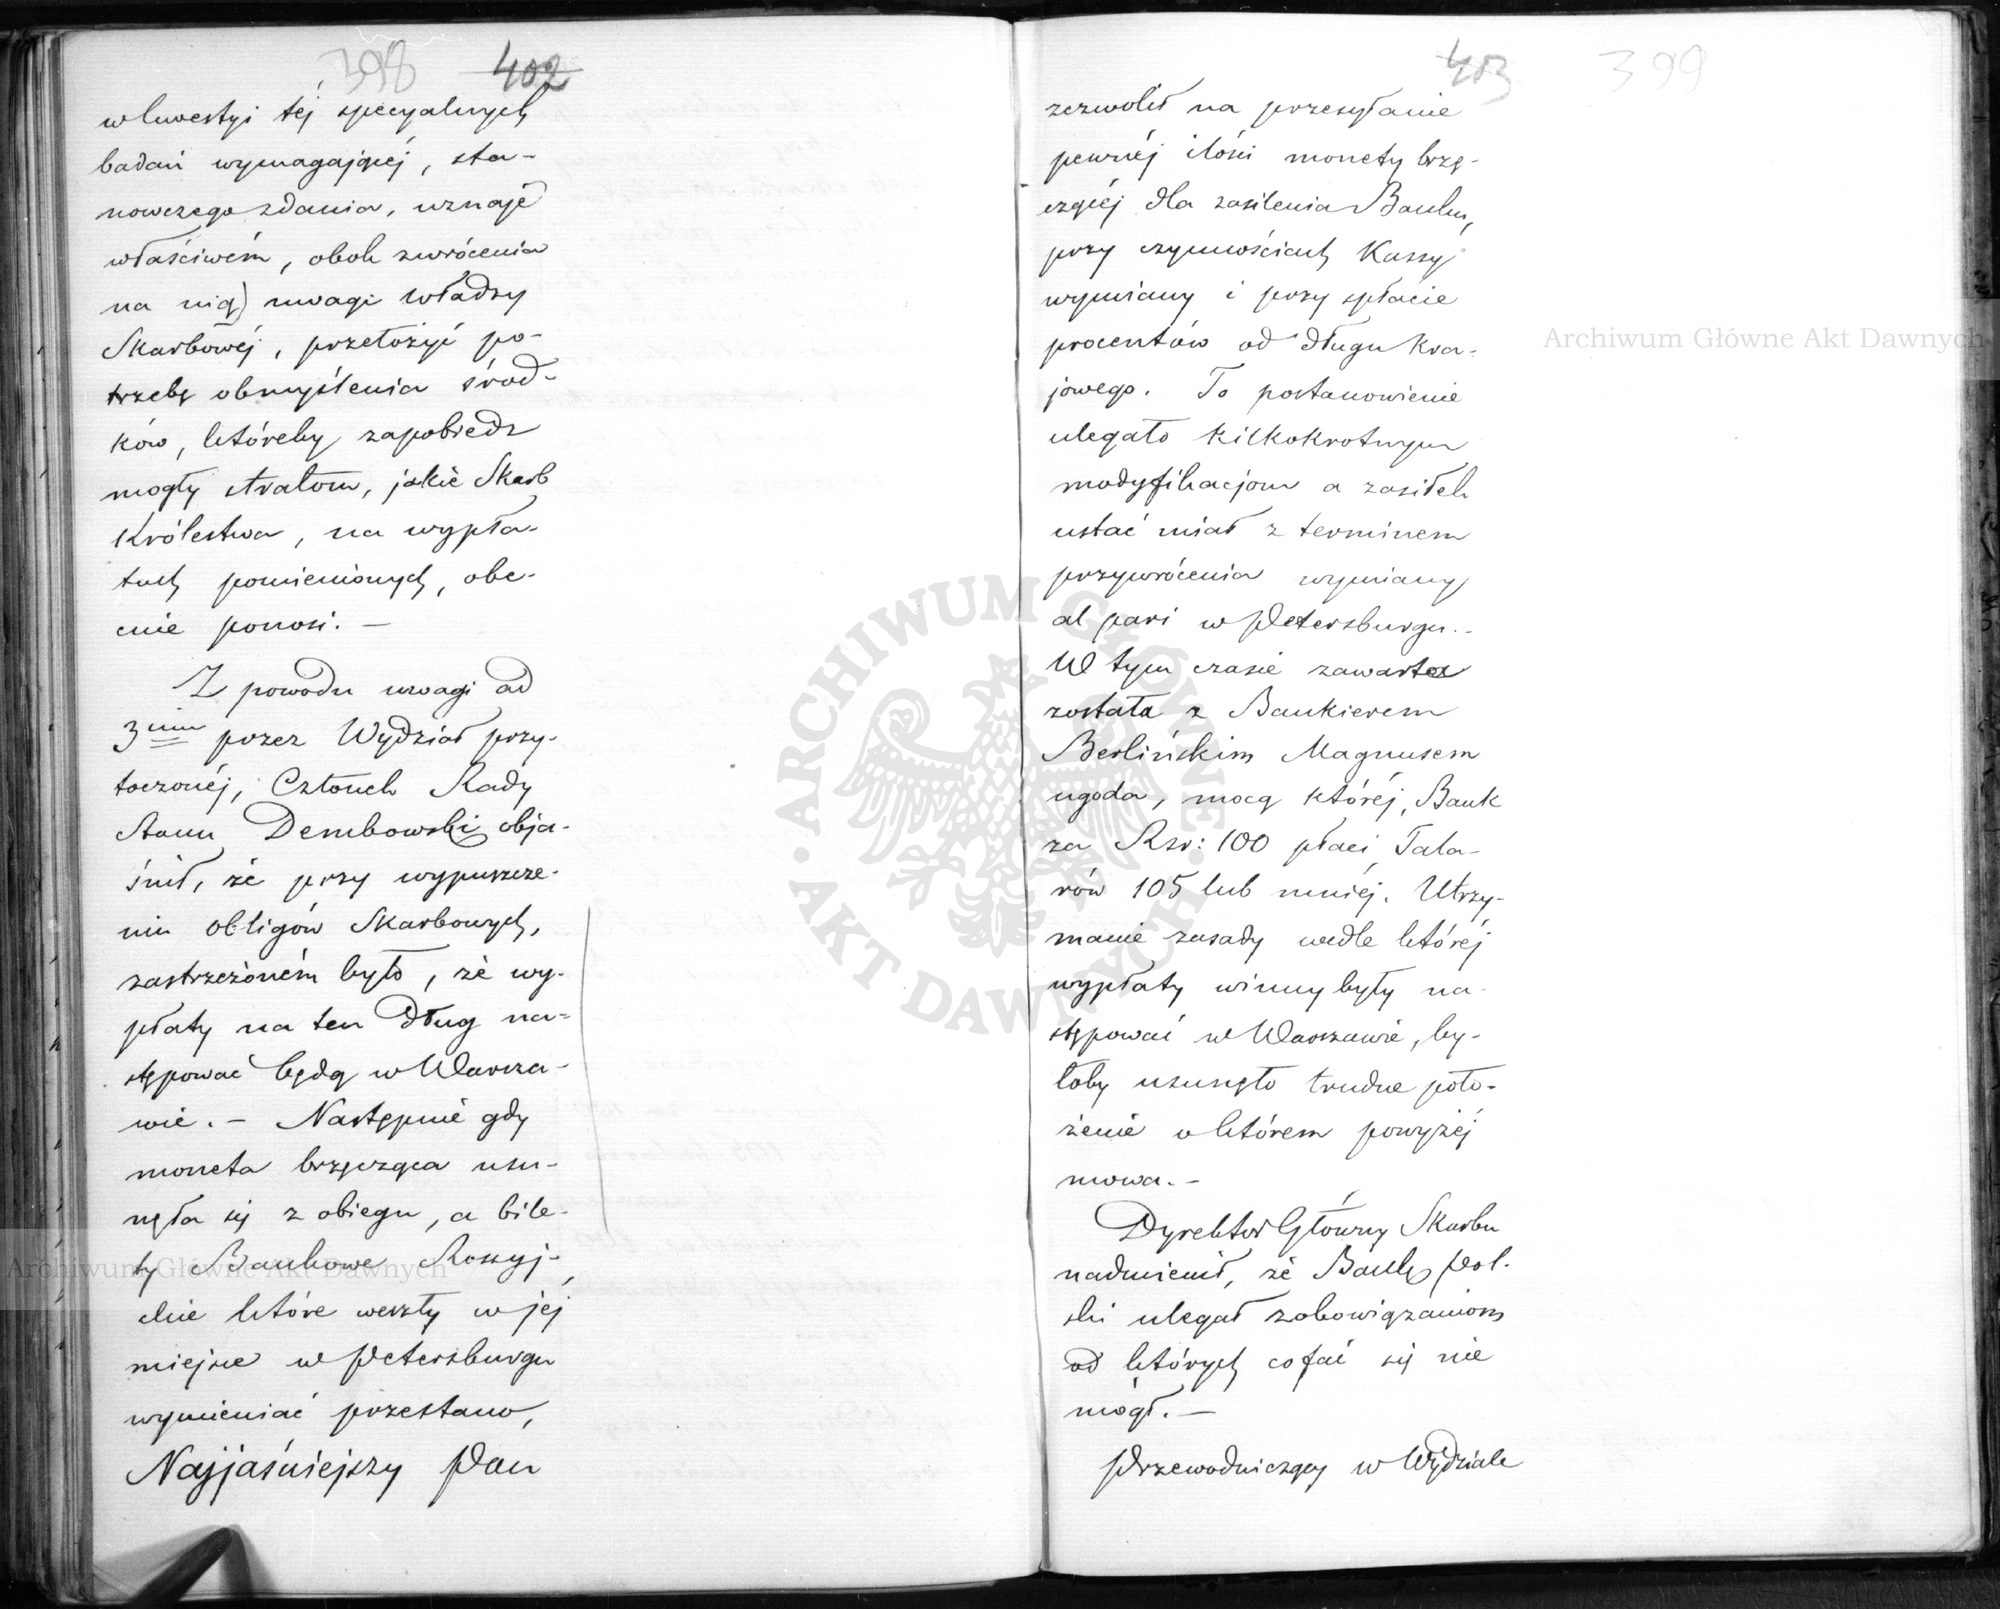 398 402
w kwestyi téj specyalnych
badań wymagającéj, sta-
nowczego zdania, uznaje
właściwém, obok zwrócenia
na nią uwagi Władzy
Skarbowéj, przełożyć po-
trzebę obmyślenia środ-
ków, któreby zapobiedz
mogły stratom, jakie Skarb
Królestwa, na wypła-
tach pomienionych, obe-
cnie ponosi. —
Z powodu uwagi ad
3um przez Wydział przy-
toczonéj, Członek Rady
Stanu Dembowski obja-
śnił, że przy wypuszcze-
niu obligów Skarbowych,
zastrzeżoném było, że wy-
płaty na ten dług na-
stępować będą w Warsza-
wie. — Następnie gdy
moneta brzęcząca usu-
nęła się z obiegu, a bile-
ty Bankowe Rossyj-
skie które weszły w jej
miejsce w Petersburgu
wymieniać przestano,
Najjaśniejszy Pan
403 399
zezwolił na przesyłanie
pewnéj ilości monety brzę-
czącéj dla zasilenia Banku,
przy czynnościach Kassy
wymiany i przy spłacie
procentów od długu Kra-
jowego. To postanowienie
ulegało kilkokrotnym
modyfikacjom a zasiłek
ustać miał z terminem
przywrócenia wymiany
al pari w Petersburgu. -
W tym czasie zawarta
została z Bankierem
Berlińskim Magnusem
ugoda, mocą któréj, Bank
za Rsr: 100 płaci Tala-
rów 105 lub mniéj. Utrzy-
manie zasady wedle któréj
wypłaty winny były na-
stępować w Warszawie, by-
łoby usunęło trudne poło-
żenie o którem powyżéj
mowa. —
Dyrektor Główny Skarbu
nadmienił, że Bank Pol-
ski ulegał zobowiązaniom
od których cofać się nie
mógł. —
Przewodniczący w Wydziale
Archiwum Główne Akt Dawnych
Archiwum Główne Akt Dawnych
ARCHIWUM GŁÓWNE · AKT DAWNYCH ·